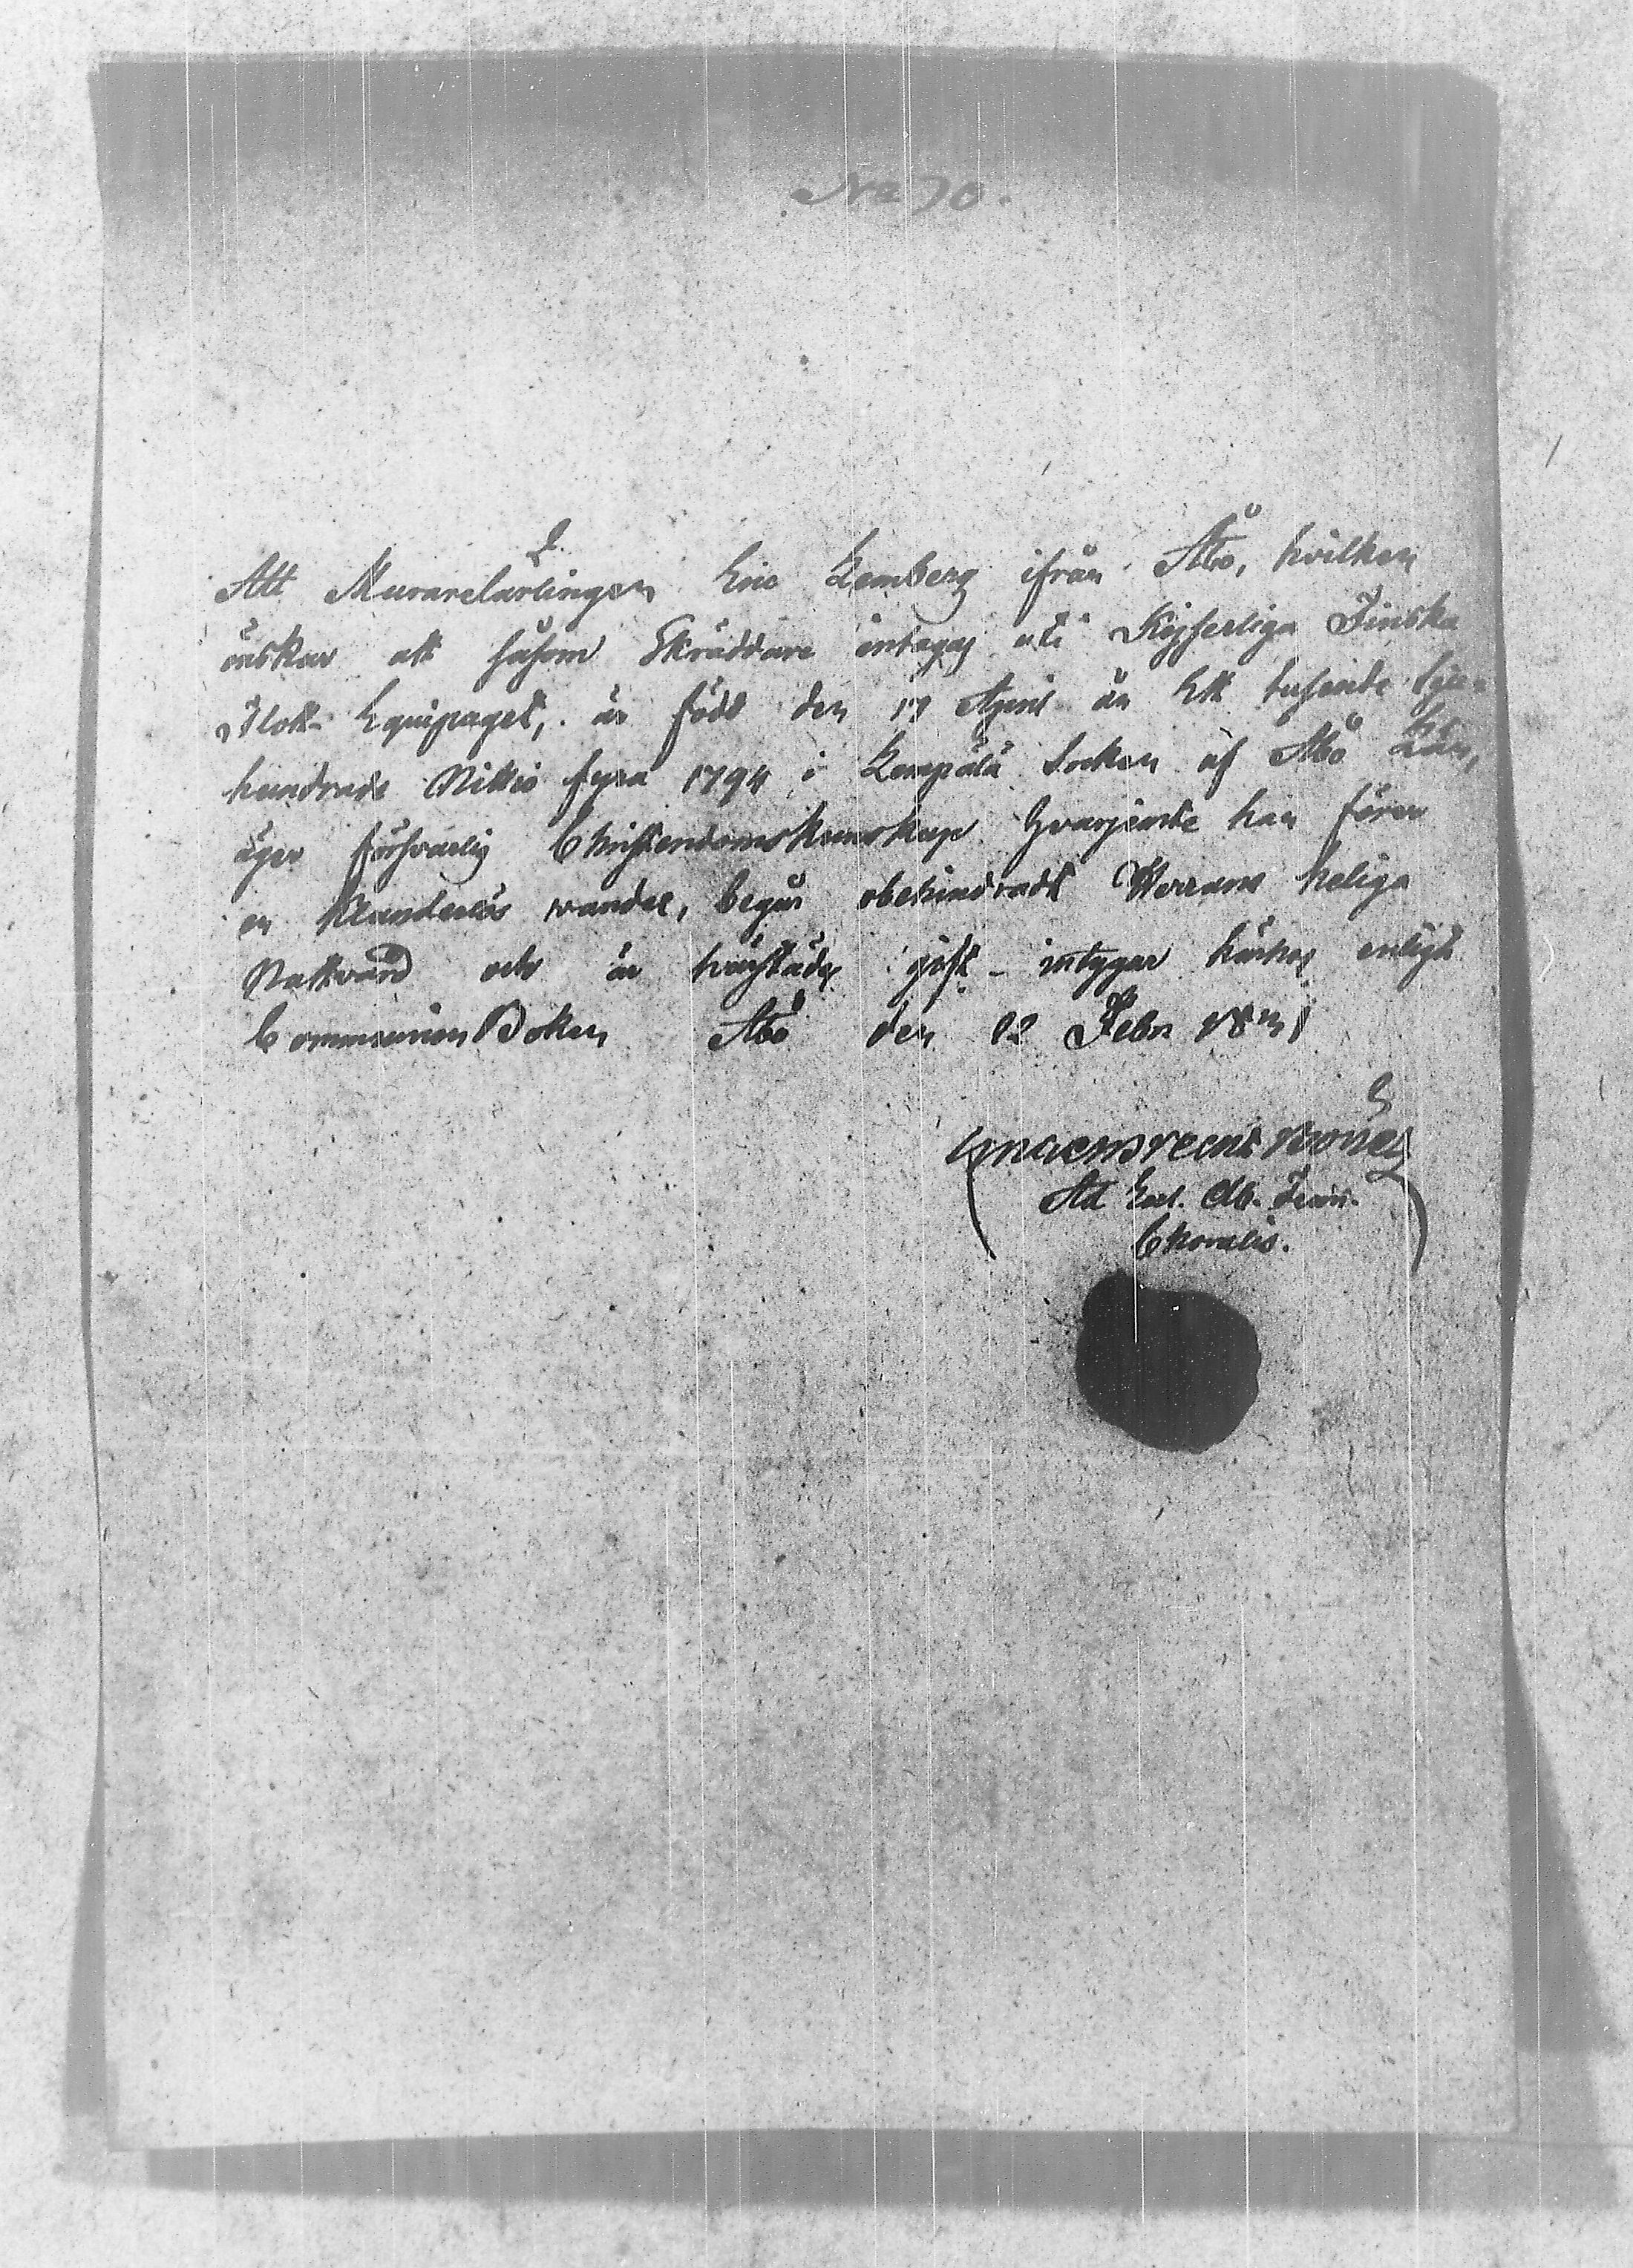 No 70.
Att Murarelärlingen Eric Lemberg ifrån Åbo, hvilken
önskar att såsom Skräddare intagas uti Kejserliga Finska
Flott Equipaget, är född den 17 April år Ett tusende Sju-
hundrade Nittio fyra 1794 i Lempälä Socken af Åbo Län,
äger försvarlig Christendomskunskap hvarjemte han förer
en klanderlös vandel, begår obehindradt Herrans heliga
Nattvard och är härstädes gift - intygar härhos enligt
Communion Boken Åbo den 12 Febr
Ad Eccl. Ab.